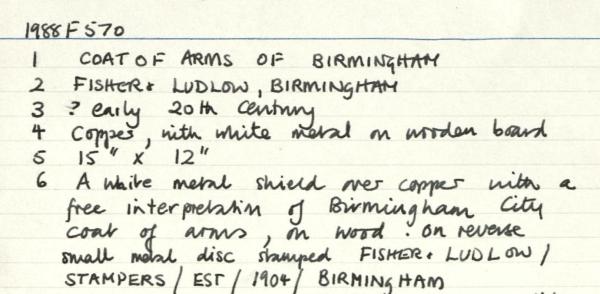 1988F570
1 COAT OF ARMS OF BIRMINGHAM
2 FISHER & LUDLOW, BIRMINGHAM
3 ? early 20th century
4 Copper, with white metal on wooden board
5 15" x 12"
6 A white metal shield over copper with a
free interpretation of Birmingham City
coat of arms, on wood. On reverse
small metal disc stamped FISHER & LUDLOW /
STAMPERS / EST / 1904 / BIRMINGHAM